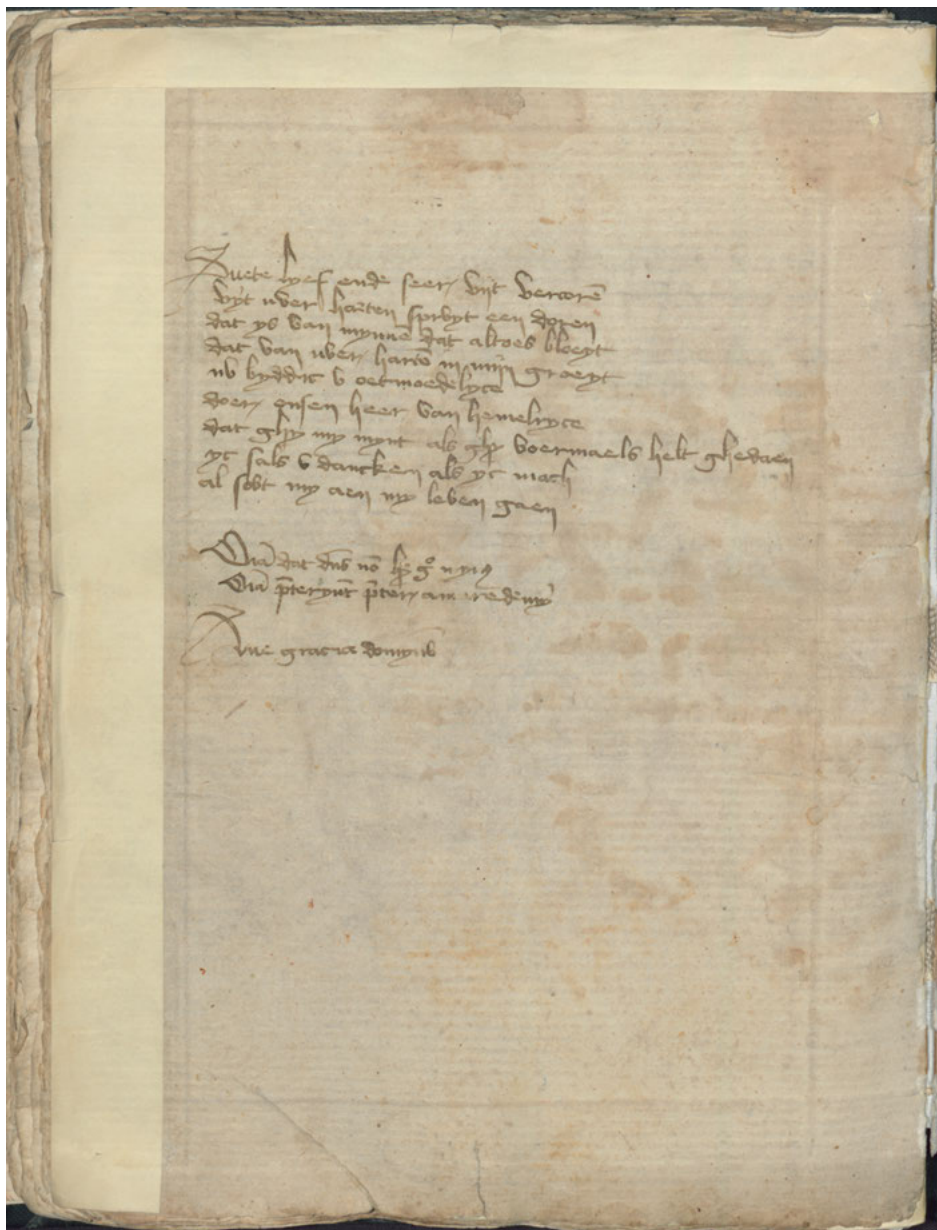 Suete lyef ende seer vijt vercorē
vyt uwer harten spruyt een doren
dat ys van mynnē dat altoes bloeyt
dat van uwer hartē in mijn groeyt
nv byddic v oetmoedelyce
doer onsen heer van hemelryce
dat ghy my mynt als ghy voermaels helt ghedaen
yc sals v dancken als yc mach
al sovt my aen my leven gaen
dat dn̄s nō
p̄ter am
Aue gracia domynvs